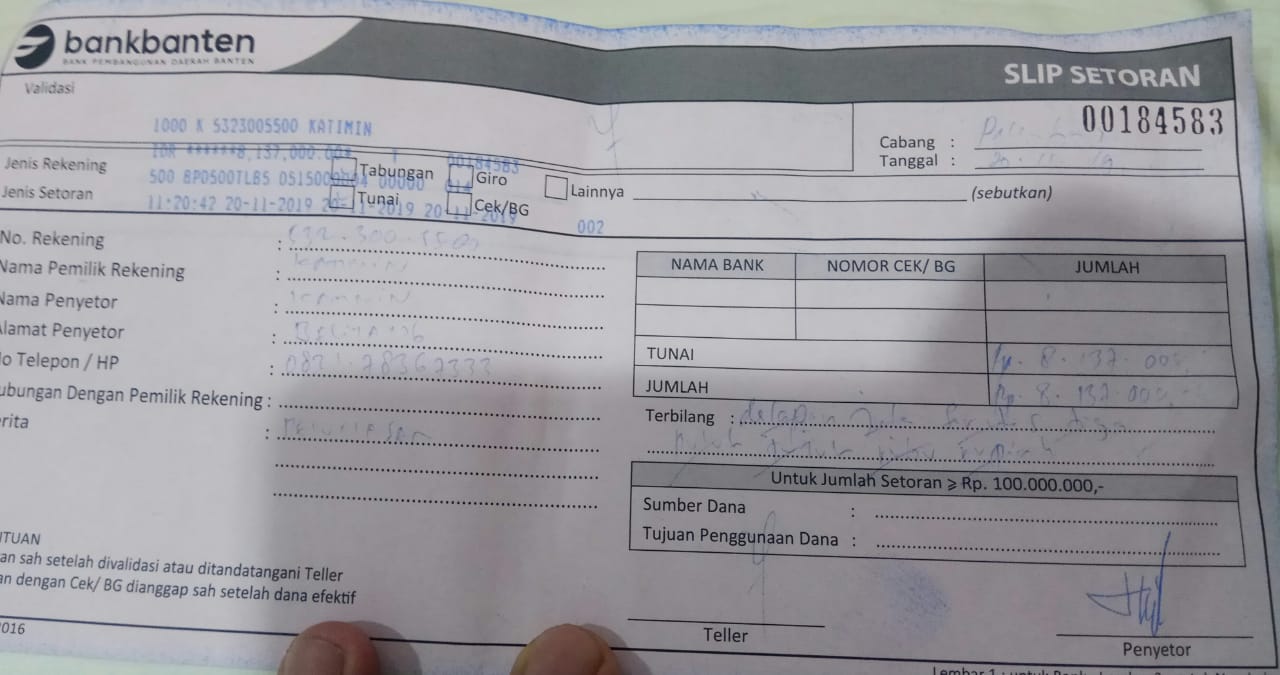 bankbanten
BANK PEMBANGUNAN DAERAH BANTEN
SLIP SETORAN
Validasi
00184583
1000 K 5323005500 KATIMIN
Cabang :
Tanggal : 20-11-19
IDR ******8,137,000.00* 00184583
Jenis Rekening Tabungan Giro Lainnya (sebutkan)
500 BP0500TLB5 00000
Jenis Setoran Tunai Cek/BG
11:20:42 20-11-2019 20-11-2019 20-11-2019
002
No. Rekening : 532.300.5500
Nama Pemilik Rekening :
Nama Penyetor :
Alamat Penyetor :
o Telepon / HP :
ubungan Dengan Pemilik Rekening :
rita : Pelunasan
NAMA BANK NOMOR CEK/ BG JUMLAH
TUNAI Rp. 8.137.000,-
JUMLAH Rp. 8.137.000,-
Terbilang : delapan Juta Seratus tiga
puluh tujuh ribu rupiah
Untuk Jumlah Setoran ⩾ Rp. 100.000.000,-
Sumber Dana :
Tujuan Penggunaan Dana :
TUAN
an sah setelah divalidasi atau ditandatangani Teller
an dengan Cek/ BG dianggap sah setelah dana efektif
2016
Teller
Penyetor
Lembar 1 : untuk